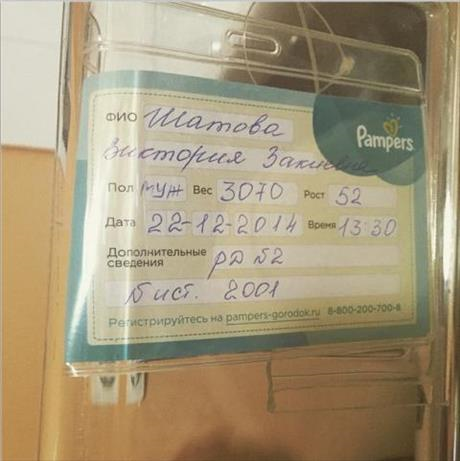 ФИО Шатова
Pampers
Виктория Закиевна
Пол муж Вес 3070 Рост 52
Дата 22-12-2014 Время 13:30
Дополнительные сведения рД №2
№ ист. 2001
Регистрируйтесь на pampers-gorodok.ru 8-800-200-700-8